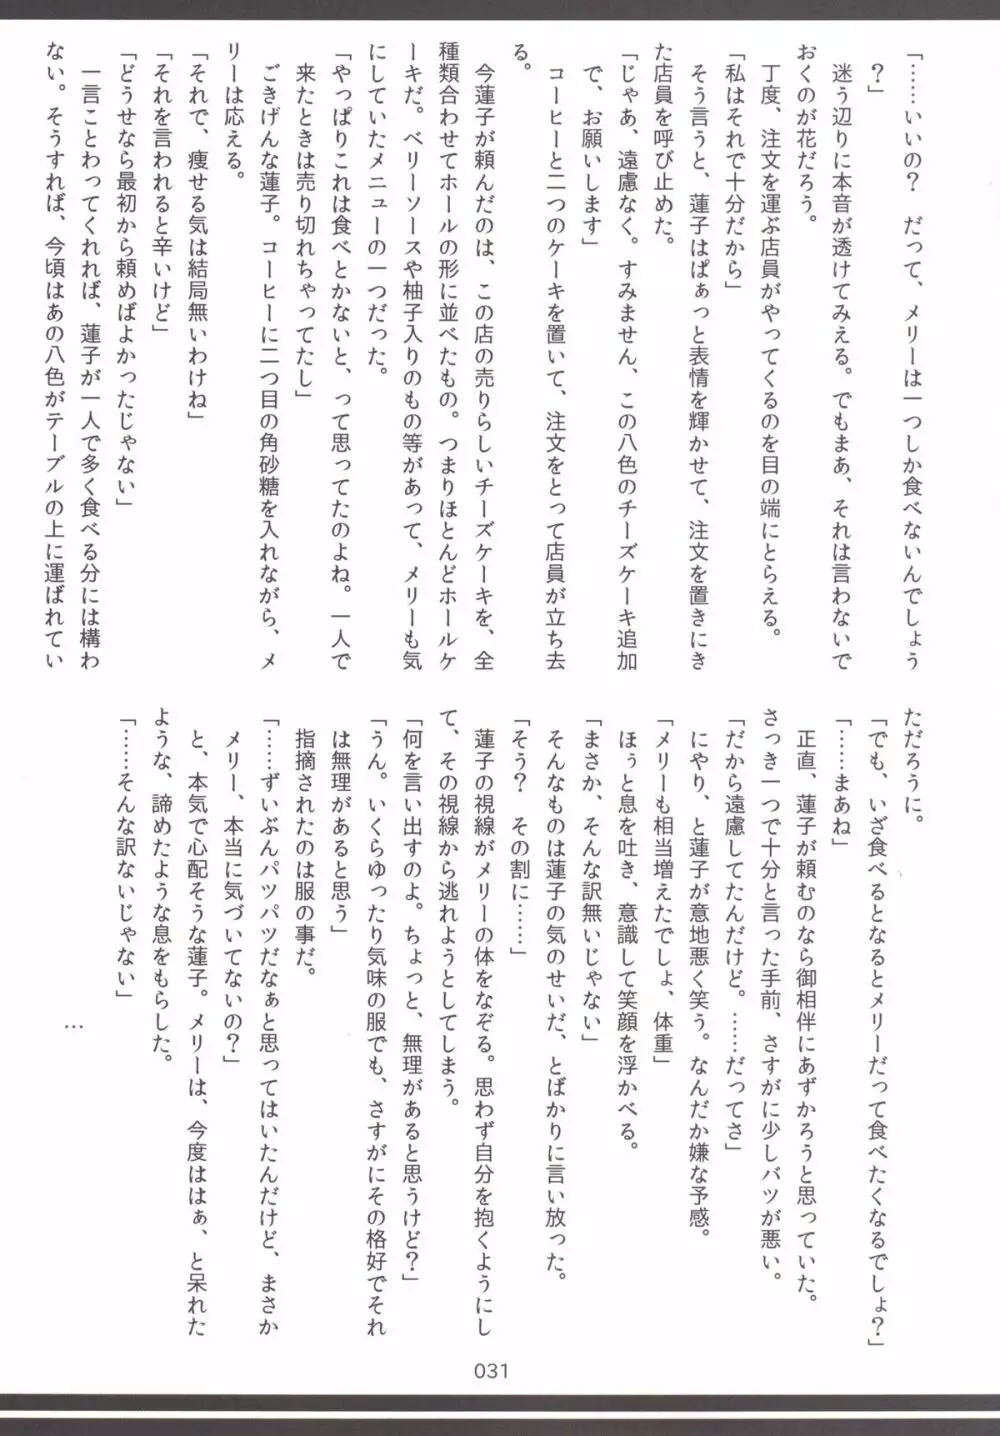 「……いいの？　だって、メリーは一つしか食べないんでしょう
？」
　迷う辺りに本音が透けてみえる。でもまあ、それは言わないで
おくのが花だろう。
　丁度、注文を運ぶ店員がやってくるのを目の端にとらえる。
「私はそれで十分だから」
　そう言うと、蓮子はぱぁっと表情を輝かせて、注文を置きにき
た店員を呼び止めた。
「じゃあ、遠慮なく。すみません、この八色のチーズケーキ追加
で、お願いします」
　コーヒーと二つのケーキを置いて、注文をとって店員が立ち去
る。
　今蓮子が頼んだのは、この店の売りらしいチーズケーキを、全
種類合わせてホールの形に並べたもの。つまりほとんどホールケ
ーキだ。ベリーソースや柚子入りのもの等があって、メリーも気
にしていたメニューの一つだった。
「やっぱりこれは食べとかないと、って思ってたのよね。一人で
来たときは売り切れちゃってたし」
　ごきげんな蓮子。コーヒーに二つ目の角砂糖を入れながら、メ
リーは応える。
「それで、痩せる気は結局無いわけね」
「それを言われると辛いけど」
「どうせなら最初から頼めばよかったじゃない」
　一言ことわってくれれば、蓮子が一人で多く食べる分には構わ
ない。そうすれば、今頃はあの八色がテーブルの上に運ばれてい
ただろうに。
「でも、いざ食べるとなるとメリーだって食べたくなるでしょ？」
「……まあね」
　正直、蓮子が頼むのなら御相伴にあずかろうと思っていた。
さっき一つで十分と言った手前、さすがに少しバツが悪い。
「だから遠慮してたんだけど。……だってさ」
　にやり、と蓮子が意地悪く笑う。なんだか嫌な予感。
「メリーも相当増えたでしょ、体重」
　ほぅと息を吐き、意識して笑顔を浮かべる。
「まさか、そんな訳無いじゃない」
　そんなものは蓮子の気のせいだ、とばかりに言い放った。
「そう？　その割に……」
　蓮子の視線がメリーの体をなぞる。思わず自分を抱くようにし
て、その視線から逃れようとしてしまう。
「何を言い出すのよ。ちょっと、無理があると思うけど？」
「うん。いくらゆったり気味の服でも、さすがにその格好でそれ
は無理があると思う」
　指摘されたのは服の事だ。
「……ずいぶんパツパツだなぁと思ってはいたんだけど、まさか
メリー、本当に気づいてないの？」
　と、本気で心配そうな蓮子。メリーは、今度ははぁ、と呆れた
ような、諦めたような息をもらした。
「……そんな訳ないじゃない」
…
031